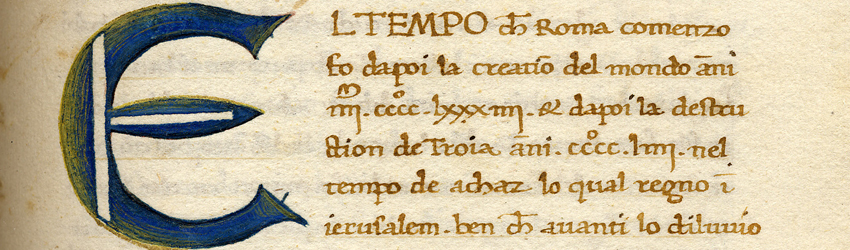 EL TEMPO ch̄ Roma comenzo
fo dapoi la creatiō del mondo āni
iiiiᵐ. ccccº. lxxxiiii. & dapoi la destru
ction de Troia āni. ccccº. liiii. nel
tempo de achaz lo qual regno ī
ierusalem. ben ch̄ auanti lo diluuio